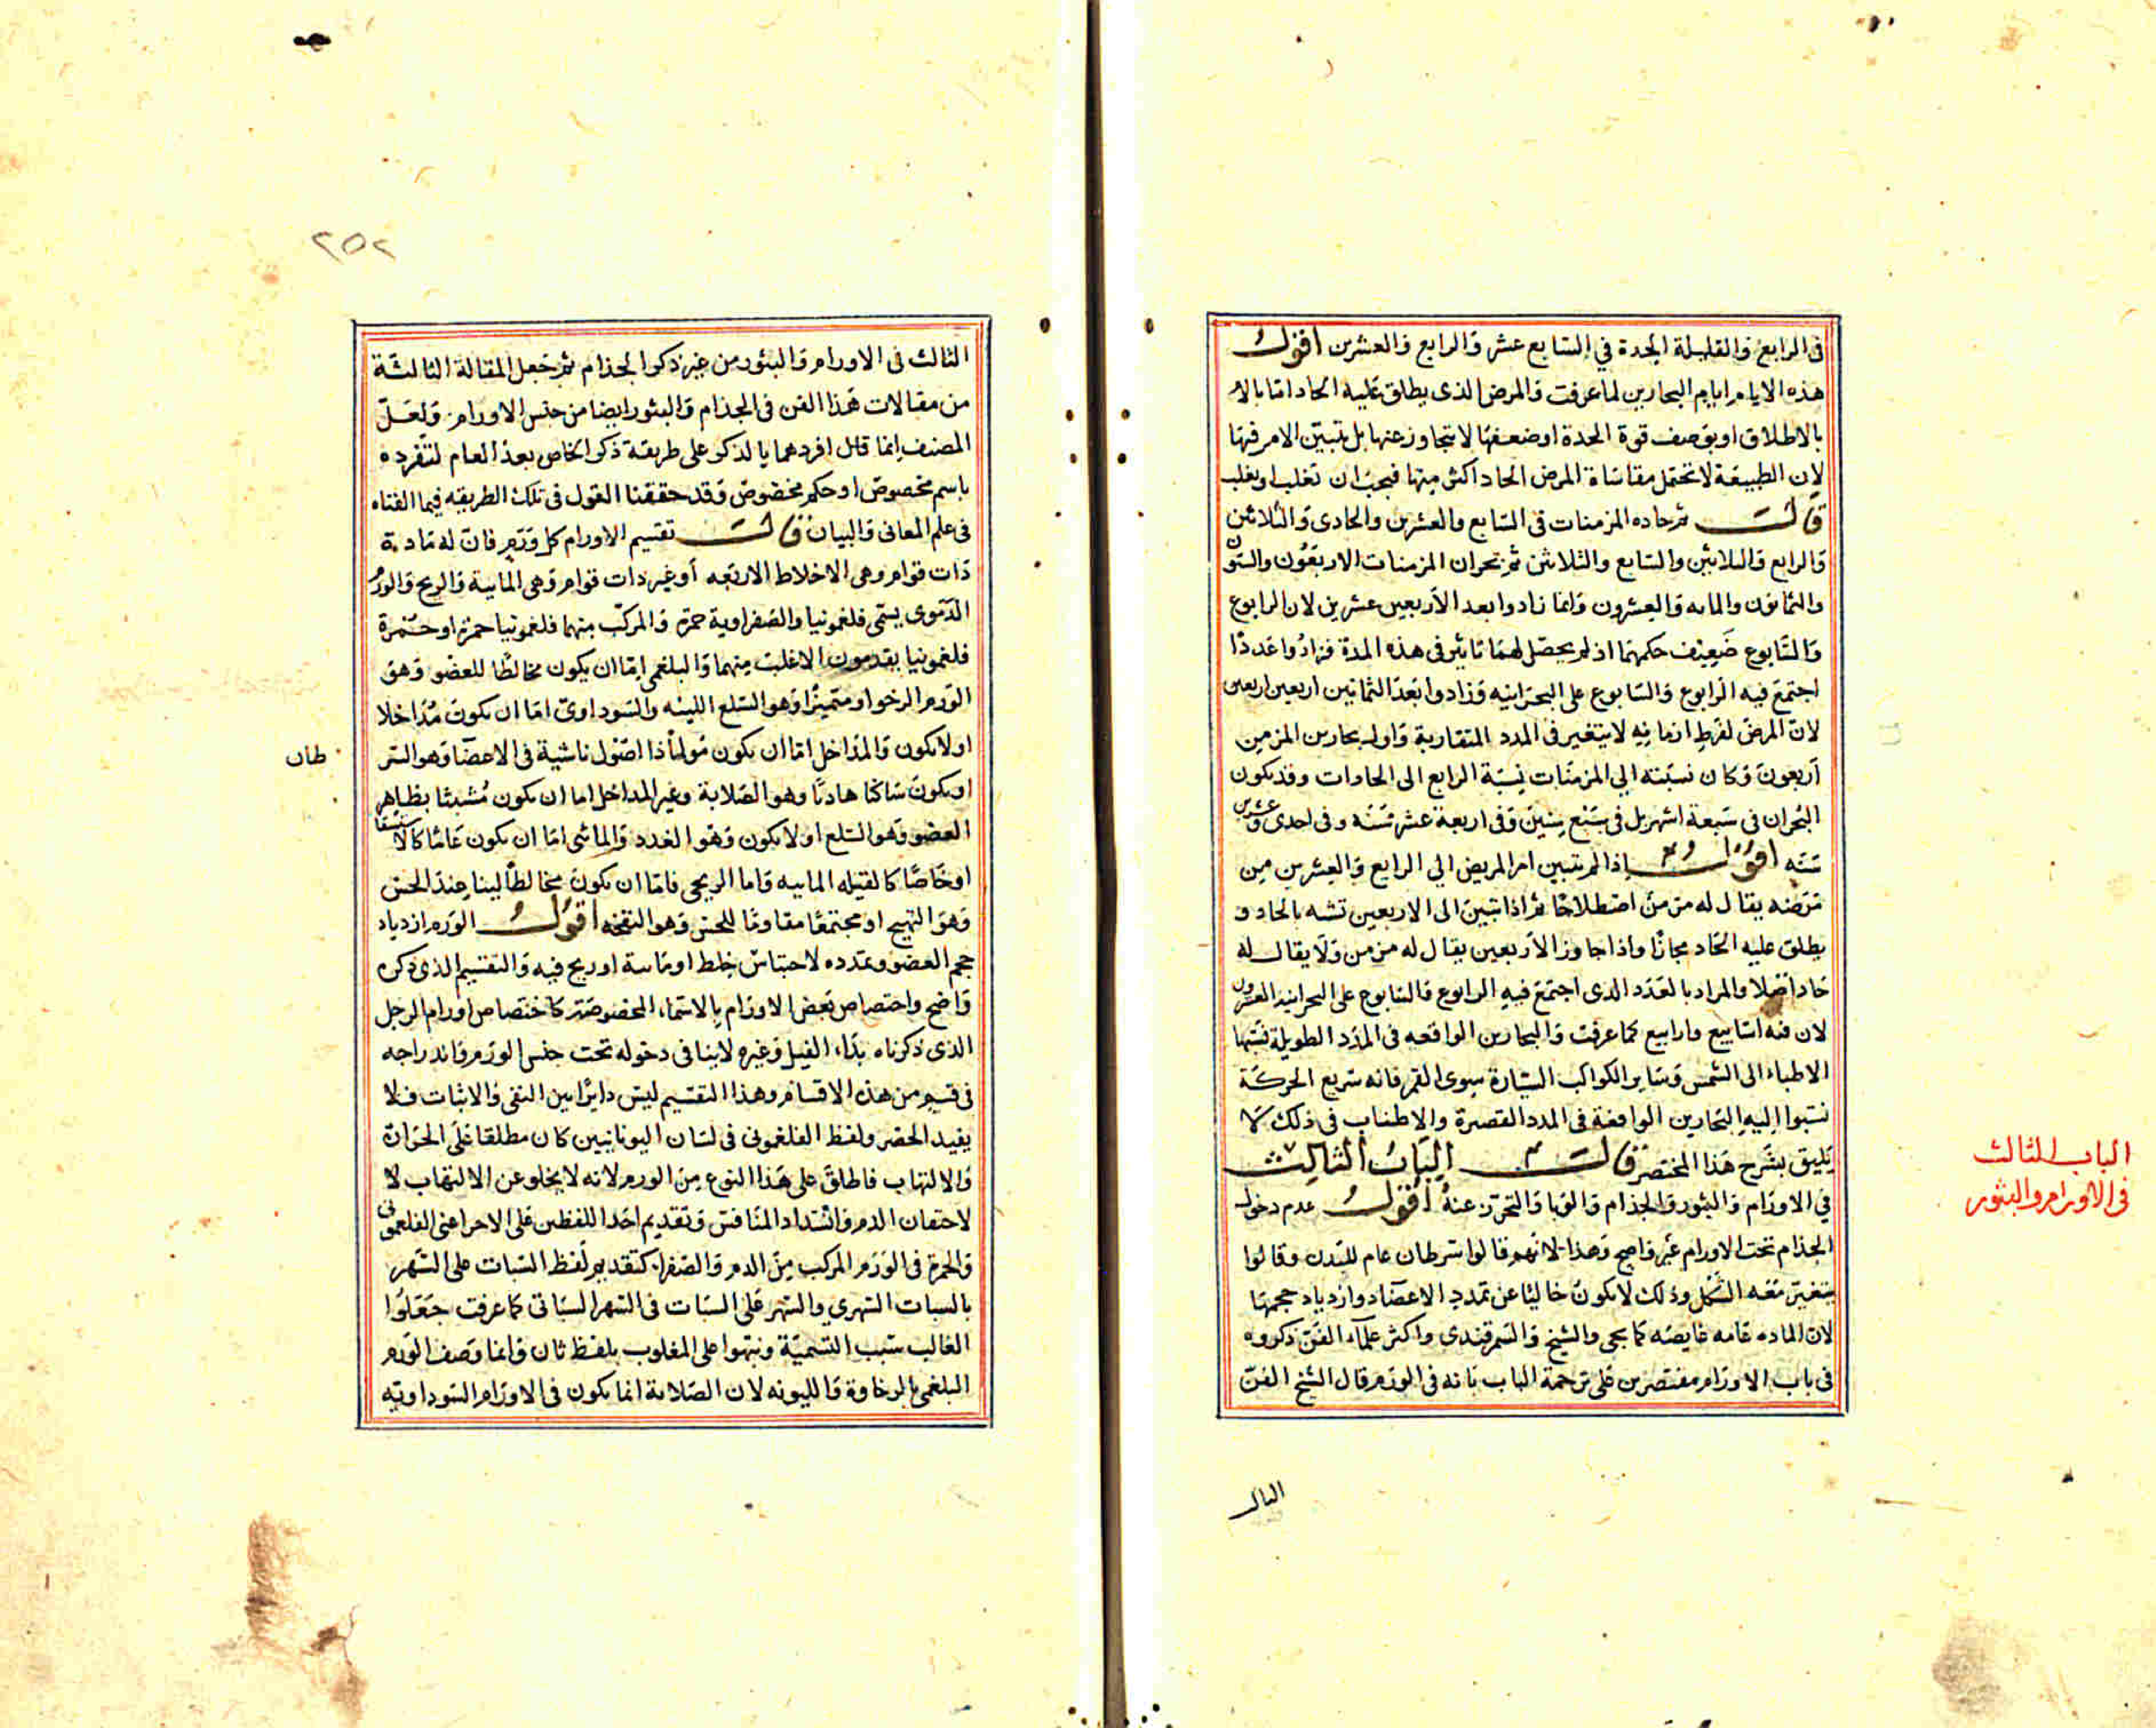 فى الرابع والقليلة الحدة في السابع عشر والرابع والعشرين اقول
هذه الايام ايام البحارين لما عرفت والمرض الذى يطلق عليه الحاد امّا بالا
بالاطلاق او بوصف قوة الحدة او ضعفها لا يتجاوز عنها بل يتبيّن الامر فيها
لان الطبيعة لا تحتمل مقاساة المرض الحاد اكثر منها فيجب ان تغلب او يغلب
قالت ثم حاده المزمنات فى السابع والعشرين والحادى والثلاثين
والرابع والثلاثين والسابع والثلاثين ثم بحران المزمنات الاربعون والستون
والثمانون والمايه والعشرون وانما زادوا بعد الاربعين عشرين لان الرابوع
والسّابوع ضعيف حكمهما اذ لم يحصل لهما تاثير فى هذه المدة فزادوا عددا
اجتمع فيه الرابوع والسابوع على البحرانيه وزادوا بعد الثمانين اربعين اربعين
لان المرض لفرط ازمانه لا يتغير فى المدد المتقاربة واول بحارين المزمن
اربعون وكان نسبته الي المزمنات نسبة الرابع الى الحادات وقد يكون
البحران فى سبعة اشهر بل فى سبع سنين وفى اربعة عشر سنه وفى احدى وعشرين
سنه اقول اذا لم يتبين امر المريض الي الرابع والعشرين من
مرضه يقال له مزمن اصطلاحًا ثم اذا تبين الى الاربعين تشبه بالحاد و
يطلق عليه الحاد مجازًا واذا جاوز الاربعين يقال له مزمن ولا يقال له
حاد اصلا والمراد بالعدد الذى اجتمع فيه الرابوع والسابوع على البحرانيه العشرون
لان فيه اسابيع وارابيع كما عرفت والبحارين الواقعه فى المدد الطويلة نسبها
الاطباء الى الشمس وساير الكواكب السيارة سوى القمر فانه سريع الحركة
نسبوا اليه البحارين الواقعة فى المدد القصيرة والاطناب فى ذلك لا
يليق بشرح هذا المختصر قالت الباب الثالث
في الاورام والبثور والجذام والوبا والتحرّز عنه اقول عدم دخول
الجذام تحت الاورام غير واضح وهذا لانهم قالوا سرطان عام للبدن وقالوا
يتغير معه الشكل وذلك لا يكون خاليا عن تمدد الاعضاء وازدياد حجمها
لان الماده عامه غايصه كما يجى والشيخ والسمرقندى واكثر علماء الفن ذكروه
فى باب الاورام مقتصرين على ترجمة الباب بانه فى الورم قال الشيخ الفنّ
الثالث
الباب الثالث
فى الاورام والبثور
٢٥٢
الثالث فى الاورام والبثور من غير ذكر الجذام ثم جعل المقالة الثالثة
من مقالات هذا الفن فى الجذام والبثور ايضا من جنس الاورام ولعلّ
المصنف انما قال افردهما بالذكر على طريقة ذكر الخاص بعد العام لتفرده
باسم مخصوص او حكم مخصوص وقد حققنا القول فى تلك الطريقه فيما الفناه
فى علم المعانى والبيان قالت تقسيم الاورام كل ورم فان له مادة
ذات قوام وهى الاخلاط الاربعه أو غير ذات قوام وهى المايية والريح والورم
الدّموى يسمّى فلغمونيا والصفراوية حمرة والمركّب منهما فلغمونيا حمرة او حمرة
فلغمونيا يقدمون الاغلب منهما والبلغمى امّا ان يكون مخالطًا للعضو وهو
الورم الرخو او متميزًا وهو السّلع اللينه والسوداوى اما ان يكون مداخلا
او لا يكون والمداخل اما ان يكون مولمًا ذا اصول ناشية فى الاعضا وهو السر
طان
او يكون ساكنا هاديًا وهو الصّلابة وغير المداخل اما ان يكون متشبثا بظاهر
العضو وهو السّلع او لا يكون وهو الغدد والمائى اما ان يكون عامًا كالاستسقا
او خاصًا كالقيله الماييه واما الريحى فاما ان يكون مخالطًا لينا عند الحس
وهو التهيج او مجتمعًا مقاومًا للحس وهو النفخه اقول الورم ازدياد
حجم العضو وتمدده لاحتباس خلط او مايية او ريح فيه والتقسيم الذى ذكره
واضح واختصاص بعض الاورام بالاسماء المخصوصة كاختصاص اورام الرجل
الذى ذكرناه بداء الفيل وغيره لا ينافى دخوله تحت جنس الورم واندراجه
فى قسم من هذه الاقسام وهذا التقسيم ليس دايرًا بين النفى والاثبات فلا
يفيد الحصر ولفظ الفلغمونى فى لسان اليونانيين كان مطلقا على الحرارة
والالتهاب فاطلق على هذا النوع من الورم لانه لا يخلو عن الالتهاب لا
لاحتقان الدم وانسداد المنافس وتقديم احد اللفظين على الاخر اعنى الفلغمونى
والحمرة فى الورم المركب من الدم والصفرا كتقديم لفظ السّبات على السّهر
بالسبات السهرى والسهر على السّبات فى السهر السّباتى كما عرفت جعلوا
الغالب سبب التسميّة ونبهوا على المغلوب بلفظ ثان وانما وصف الورم
البلغمى بالرخاوة والليونه لان الصلابة انما يكون فى الاورام السوداويّه